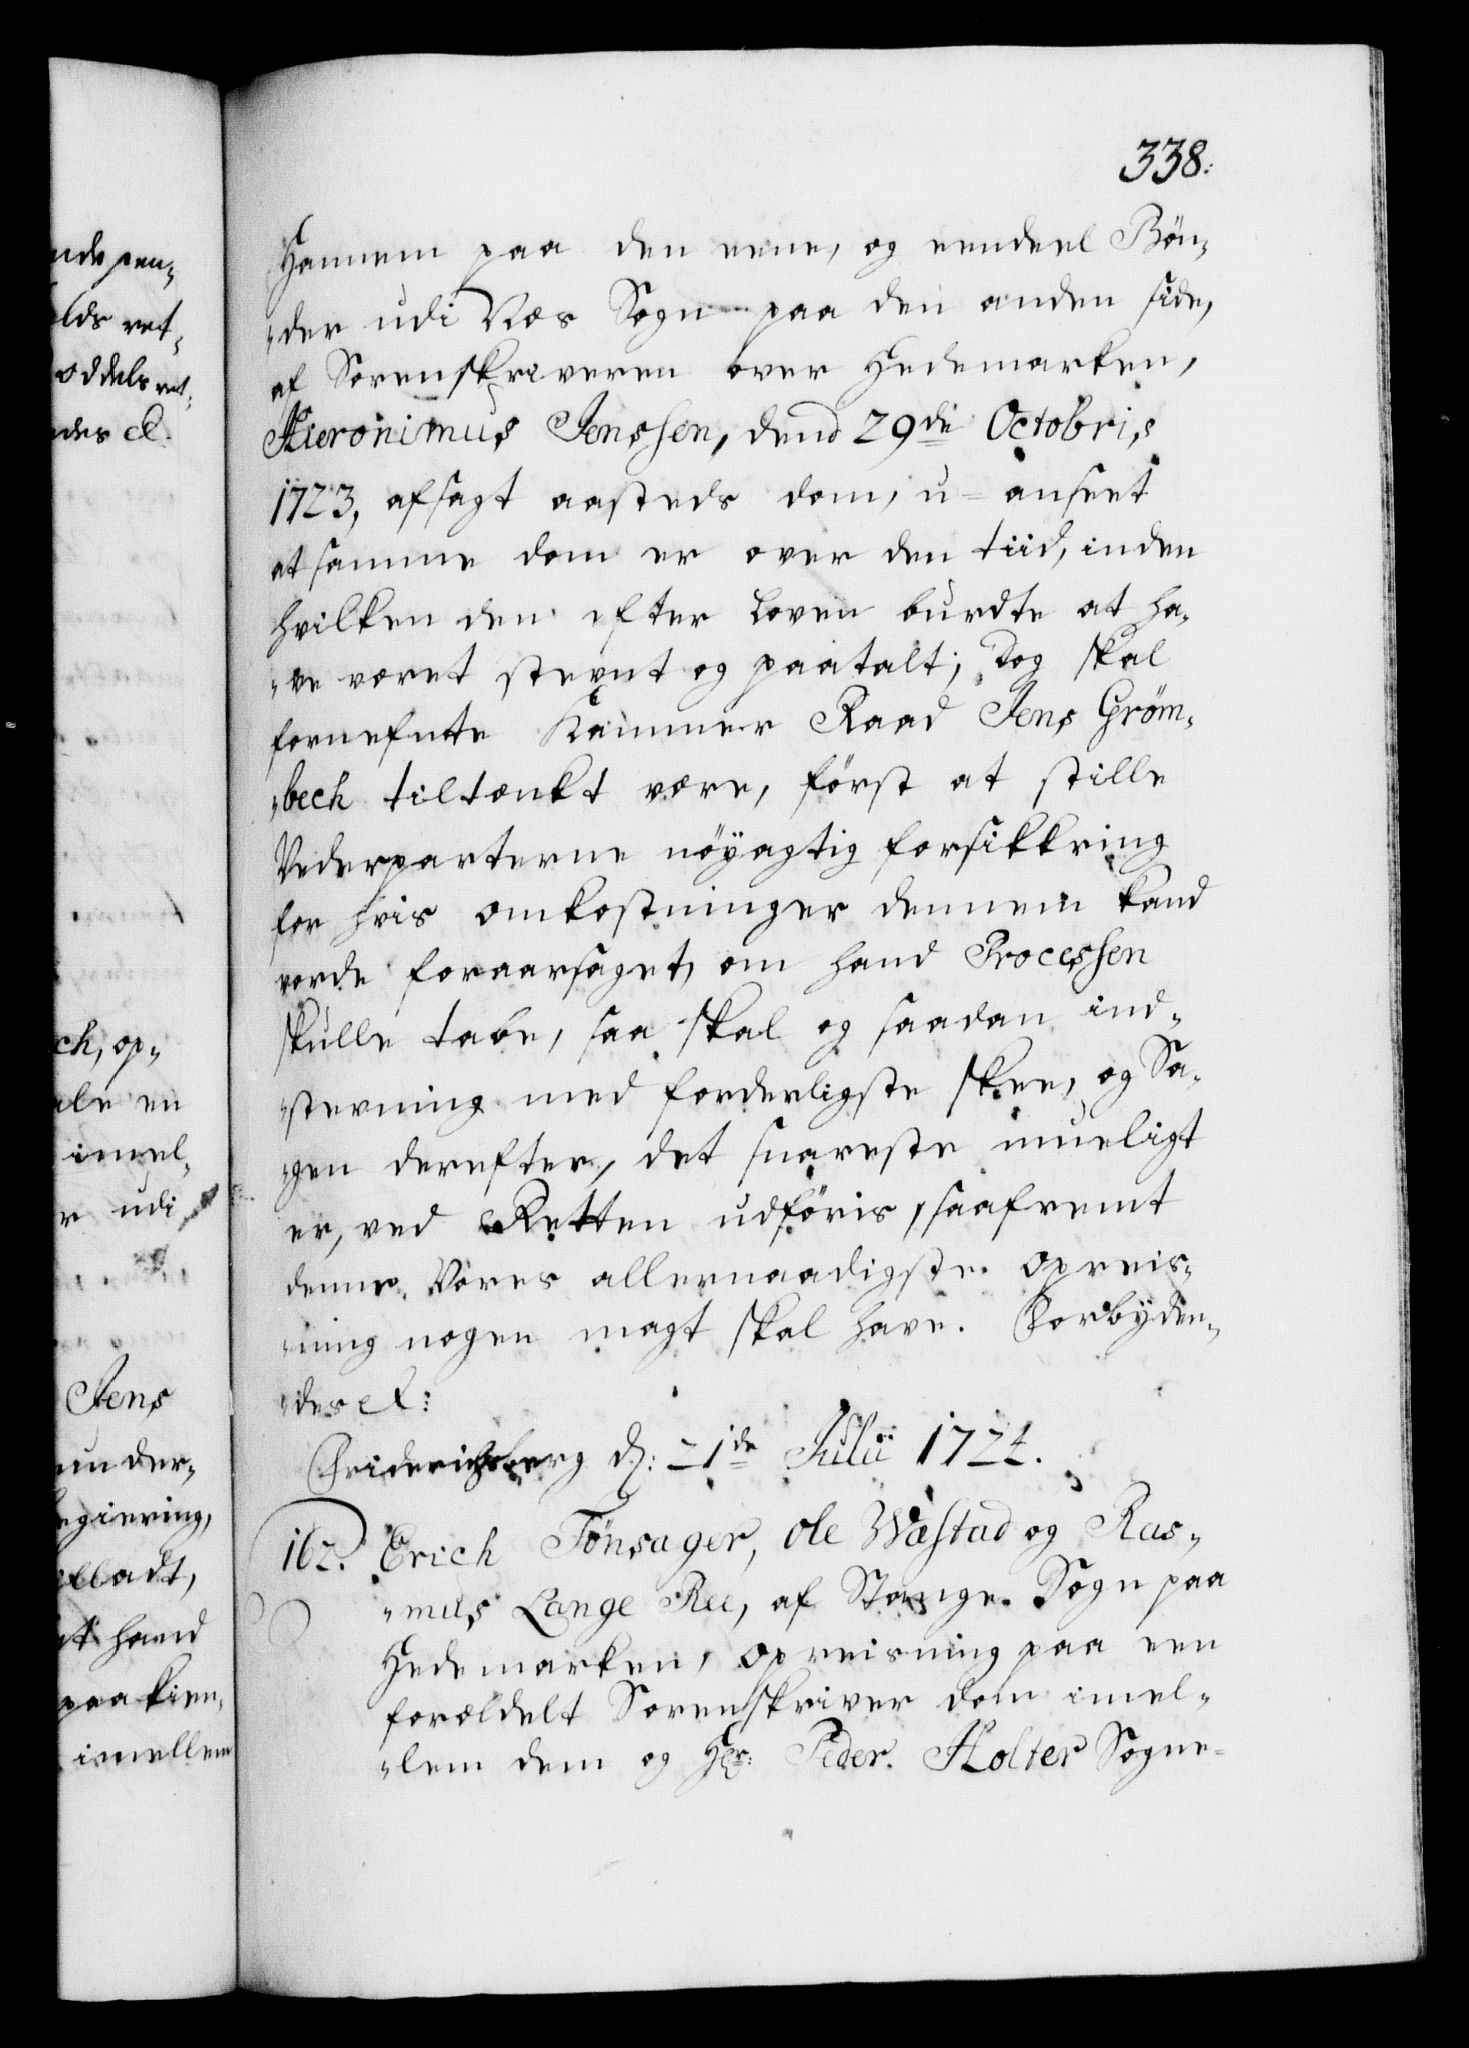 nde pen„
lds ret„
oddels ret„
ndes &.
ch, op„
ale en
imel„
r udi
Jens
un der„
egiering,
et hand
paa kien„
imellem
338:
Hannem paa den eene, og eendeel Bön„
„der udi Næs Sogn paa den anden side,
af Sorenskriveren over Hedemarken,
Hieronimus Jenssen, dend 29de Octobris
1723, afsagt aasteds dom, u=anseet
at samme dom er over den tiid, inden
hvilken den efter Loven burdte at ha„
„ve været stevnt og paatalt; Dog skal
fornefnte Kammer Raad Jens Gröm„
„bech tiltænkt være, först at stille
Vederparterne nöyagtig forsikkring
for hvis omkostninger dennem kand
vorde foraarsaget, om hand Processen
skulle tabe, saa skal og saadan ind„
„stevning med forderligste skee, og Sa„
„gen derefter, det snareste mueligt
er, ved Retten udföris, saafremt
denne Vores allernaadigste opreis„
„ning nogen magt skal have. Forbyden„
„des &:
Friderichsberg d: 21de Julii 1724.
162. Erich Tönsager, Ole Wæstad og Ras„
„mus Lange Ree, af Stange Sogn paa
Hedemarken, opreisning paa een
forældelt Sorenskriver dom imel„
„lem dem og Hr: Peder Holter Sogne=